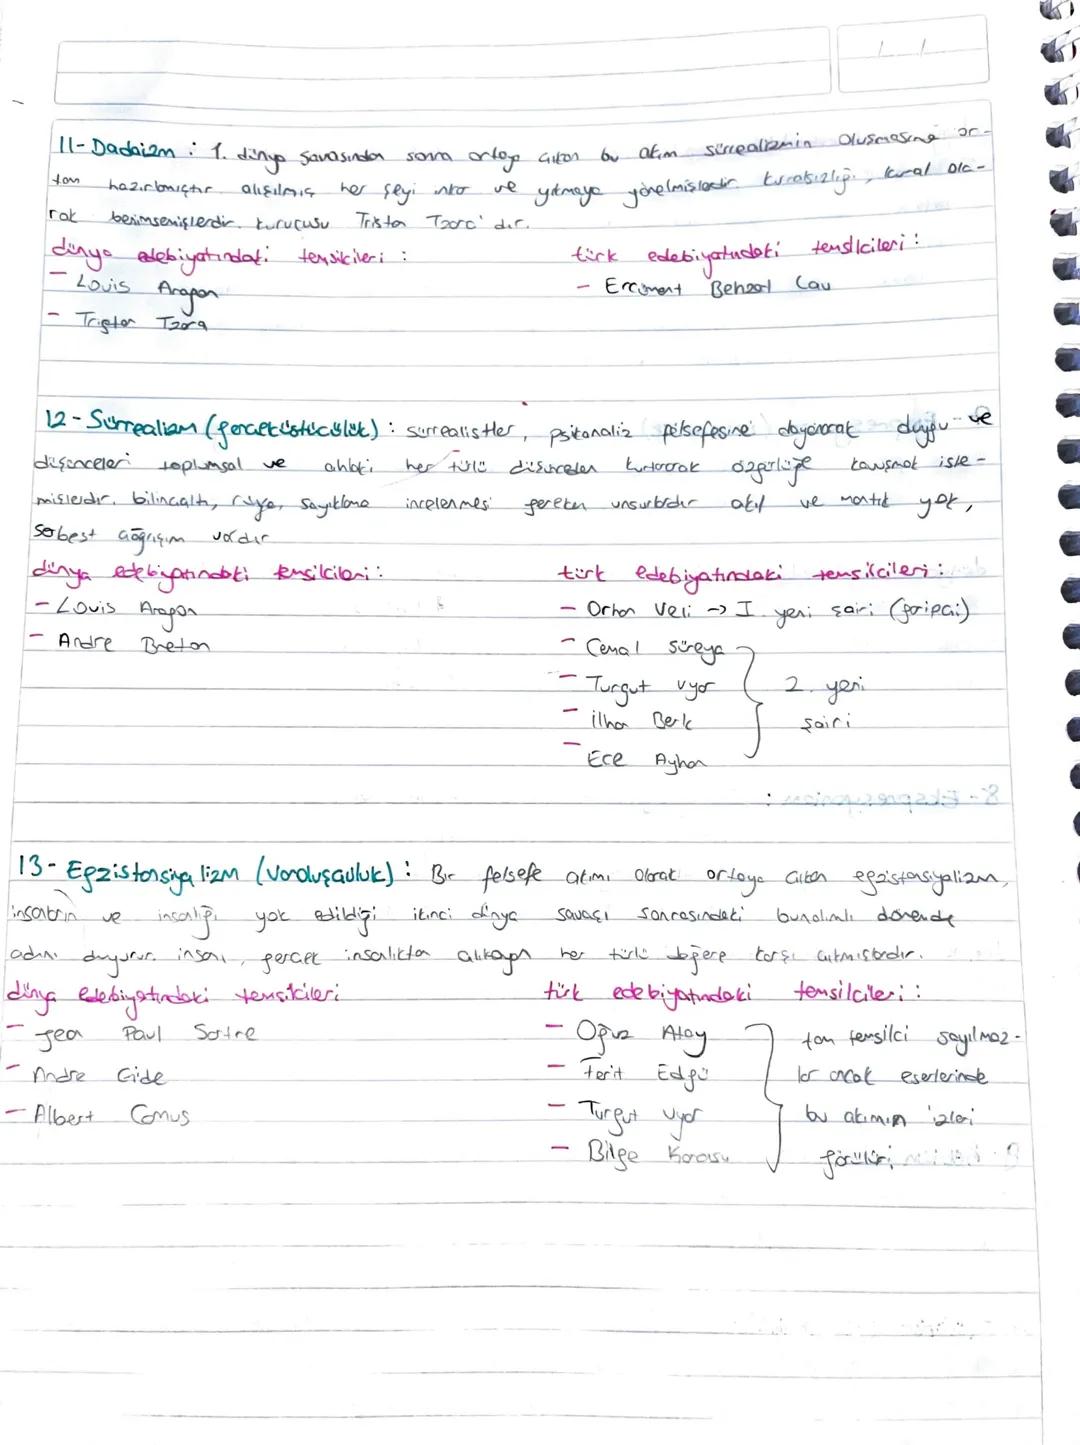 11- Dadaizm : 1. dünya savaşından sonra ortaya çıkan bu akım sürrealizmin oluşmasına or-
tam hazırlamıştır. alışılmış her şeyi inkar ve yıkmaya yönelmişlerdir. kuralsızlığı, kural ola-
rak benimsemişlerdir. kurucusu Tristan Tzara'dır.
dünya edebiyatındaki temsilcileri : türk edebiyatındaki temsilcileri :
- Louis Aragon - Ercüment Behzad Lav
- Tristan Tzara
12- Sürrealizm (gerçeküstücülük) : sürrealistler, psikanaliz felsefesine dayanarak duygu ve
düşünceleri toplumsal ve ahlaki her türlü düşünceden kurtararak özgürlüğe kavuşmak iste-
mişlerdir. bilinçaltı, rüya, sayıklama incelenmesi gereken unsurlardır akıl ve mantık yok,
serbest çağrışım vardır
dünya edebiyatındaki temsilcileri : türk edebiyatındaki temsilcileri :
- Louis Aragon - Orhan Veli → I. yeni şairi (garipçi)
- Andre Breton - Cemal süreya
- Turgut uyar 2. yeni
- ilhan Berk şairi
- Ece Ayhan
13- Egzistansiyalizm (Varoluşçuluk) : Bir felsefe akımı olarak ortaya çıkan egzistansiyalizm,
insanların ve insanlığı yok edildiği ikinci dünya savaşı sonrasındaki bunalımlı dönemde
adını duyurur. insanı, gerçek insanlıktan alıkoyan her türlü değere karşı çıkmışlardır.
dünya edebiyatındaki temsilcileri türk edebiyatındaki temsilcileri :
- Jean Paul Sartre - Oğuz Atay tam temsilci sayılmaz-
- Andre Gide - Ferit Edgü lar ancak eserlerinde
- Albert Camus - Turgut uyar bu akımın izleri
- Bilge Karasu görülür